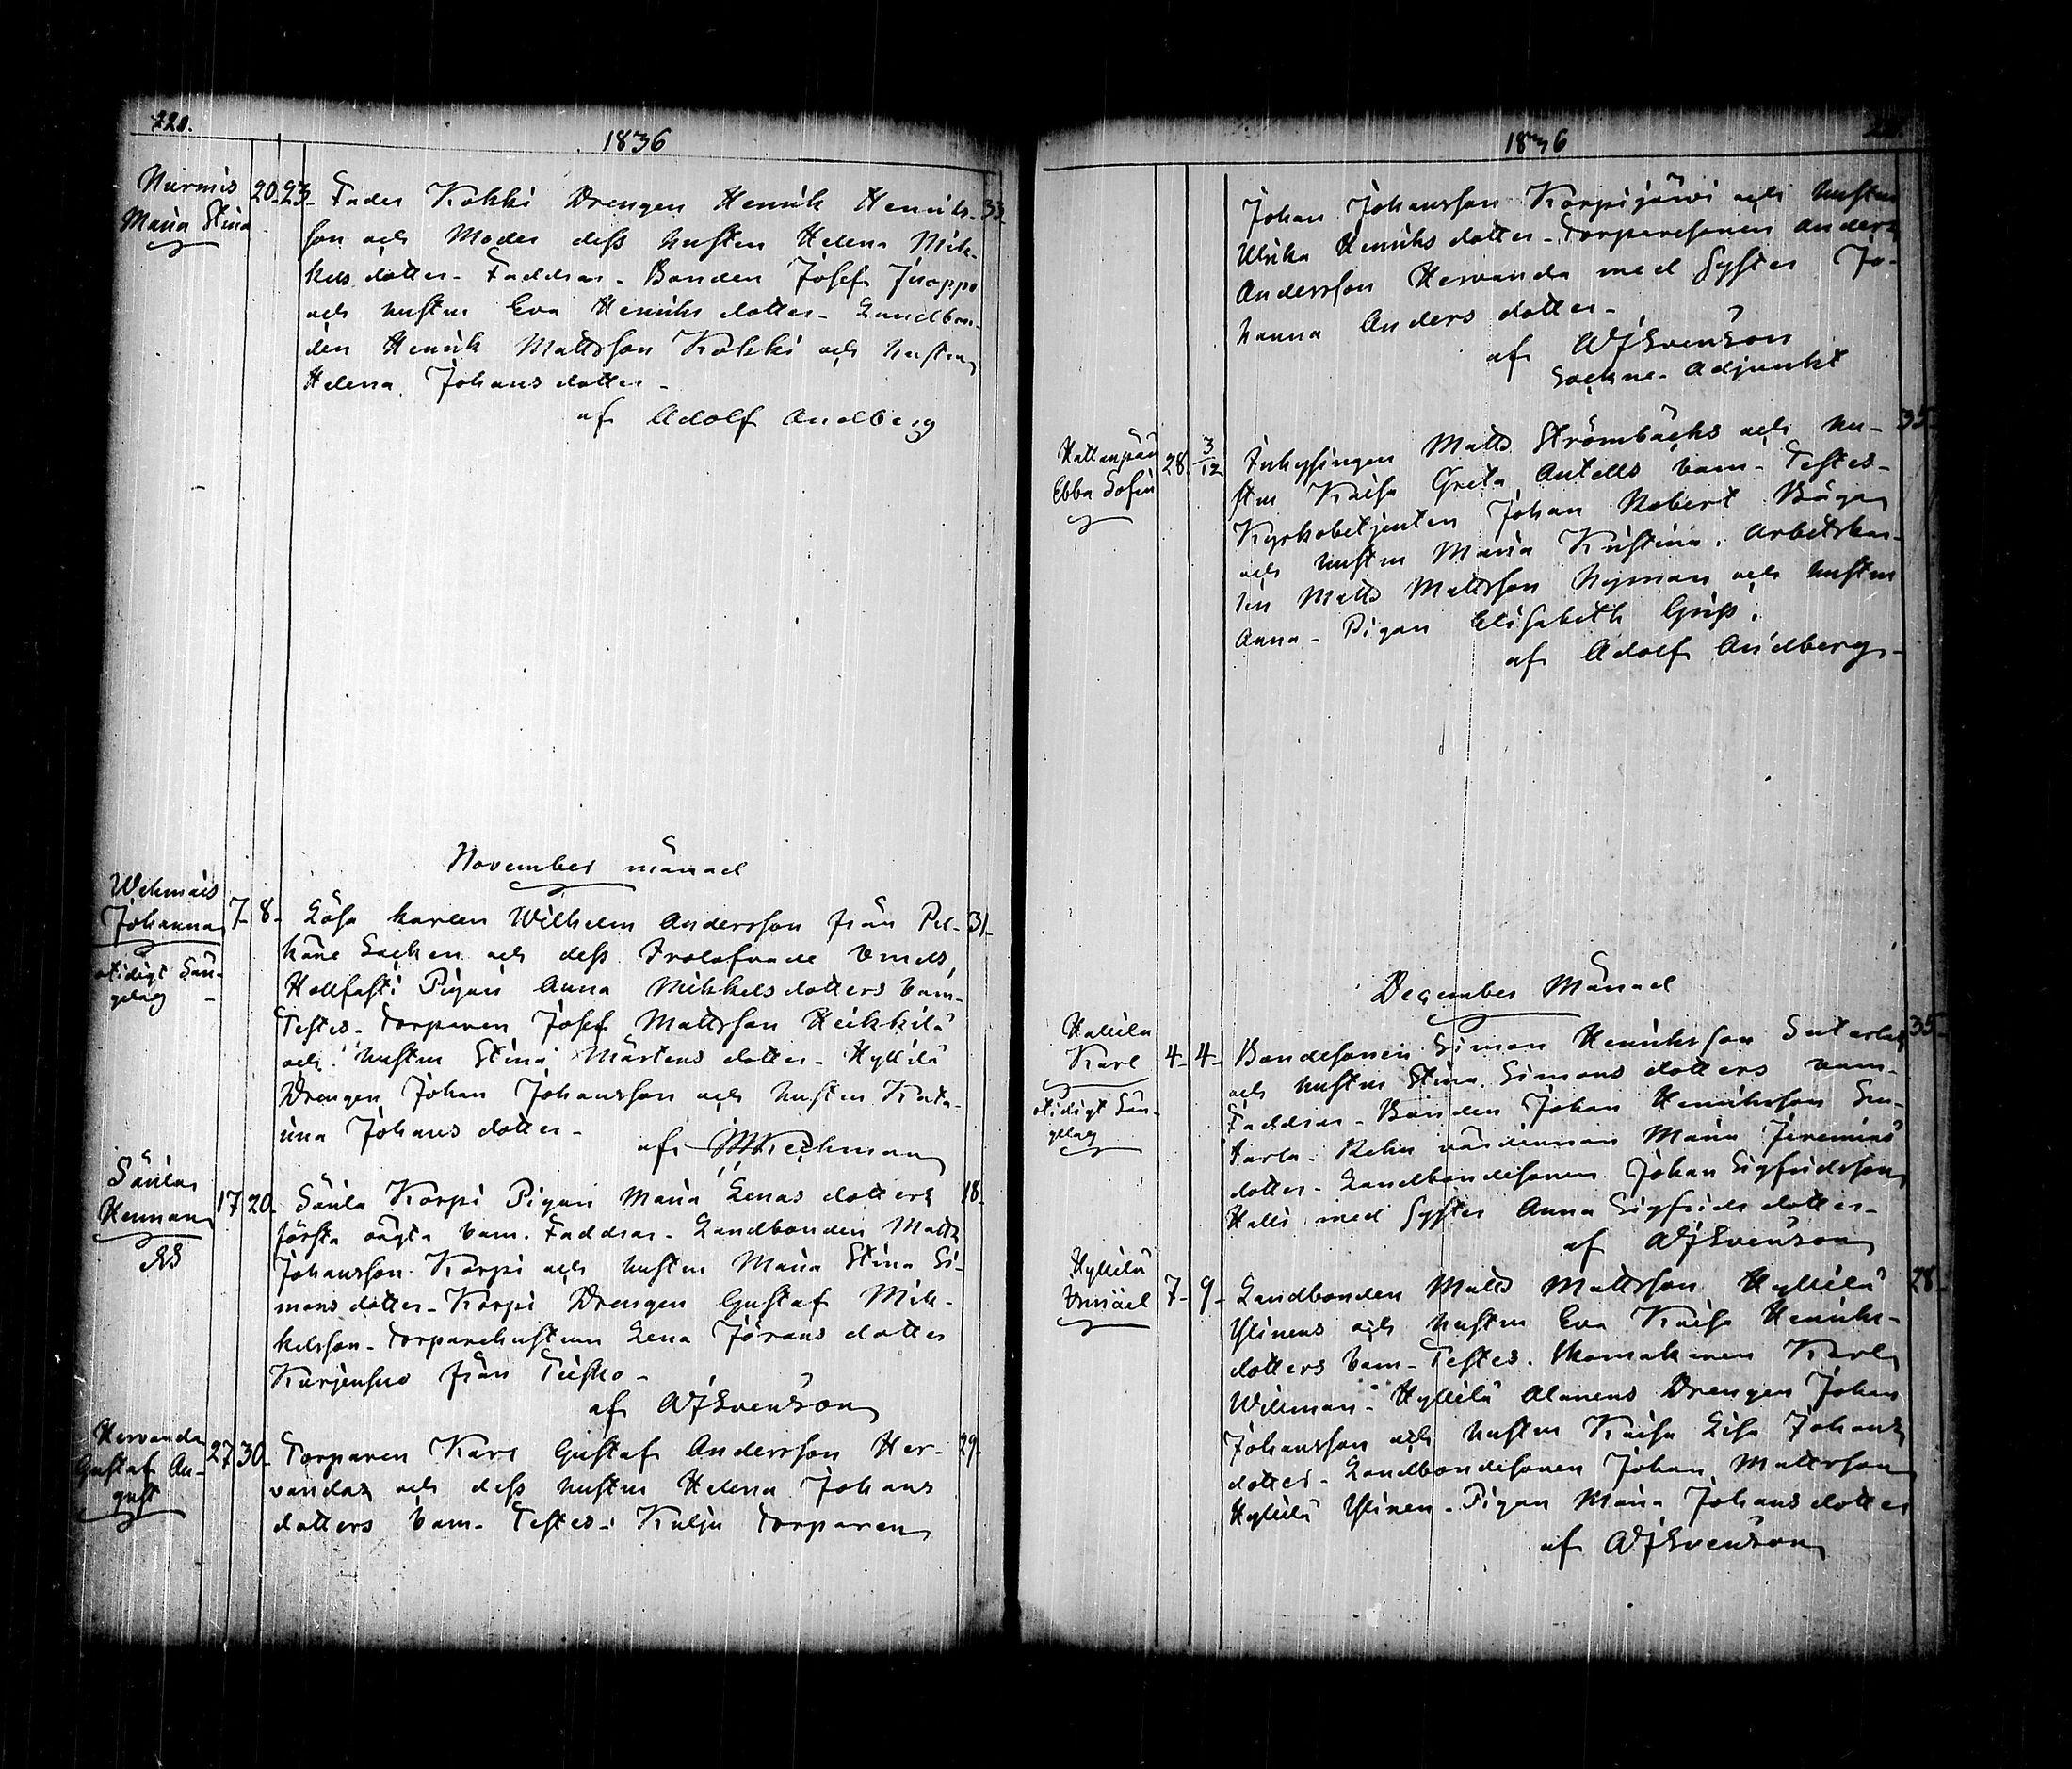 220.
1836
Nurmis
Maria Stina
20. 23.
Fader Kokki Drengen Henrik Henriks- 33.
son och Moder dess hustru Helena Mik-
kels dotter. Faddrar. Bonden Josef Juoppo
och hustru Eva Henriks dotter. Landbon-
den Henrik Mattsson Kokki och hustru
Helena Johans dotter.
af Adolf Andberg
November månad
Wehmais
Johanna
otidigt Sän-
gelag
7. 8.
Lösa karlen Wilhelm Andersson från Pel- 31.
käne Socken och dess Trolofvade
Hollfasti Pigan Anna Mikkels dotters barn.
Testes. Torparen Josef Mattsson Heikkilä
och hustru Stina Mårtens dotter. Hyllilä
Drengen Johan Johansson och hustru Kata-
rina Johans dotter.
af
Säula
Herman
17 20.
Säula Korpi Pigan Maria Lenas dotters 18.
första oägta barn. Faddrar. Landbonden Matts
Johansson Korpi och hustru Maria Stina Si-
mons dotter. Korpi Drengen Gustaf Mik-
kelsson. Torparehustrun Lena Jörans dotter
från Teisko.
af WJSvenson
Hervanda
Gustaf Au-
gust
27 30.
Torparen Karl Gustaf Andersson Her- 29.
vandas och dess hustru Helena Johans
dotters barn. Testes. Kulju Torparen
1836
Johan Johansson Korpijärvi och hustru
Ulrika Henriks dotter. Torparesonen Anders
Andersson Hervanda med Syster Jo-
hanna Anders dotter.
af WJSvenson
Sockne-Adjunkt
Hattanpää
Ebba Sofia
28. 3/12
Inhysingen Matts Strömbäcks och hu- 35.
stru Kaisa Greta Antells barn. Testes.
Kyrkobetjenten Johan Robert
och hustru Maria Kristina. Arbetskar-
len Matts Mattsson Nyman och hustru
Anna. Pigan Elisabeth
af Adolf Andberg.
December Månad
Hallila
Karl
otidigt Sän-
gelag
4. 4.
Bondesonen Simon Henriksson Sutarlas 35.
och hustru Stina Simons dotters barn.
Faddrar. Bonden Johan Henriksson Su-
tarla. värdinnan Maria Jeremias
dotter. Landbondesonen Johan Sigfridsson
Halli med Syster Anna Sigfrids dotter.
af WJSvenson
Hyllilä
7. 9.
Landbonden Matts Mattsson Hyllilä 28.
Ylinens och hustru Eva Kaisa Henriks-
dotters barn. Testes. Skomakaren Karl
Willman. Hyllilä Alanens Drengen Johan
Johansson och hustru Kaisa Lisa Johans
dotter. Landbondesonen Johan Mattsson
Hyllilä Ylinen. Pigan Maria Johans dotter
af WJSvenson